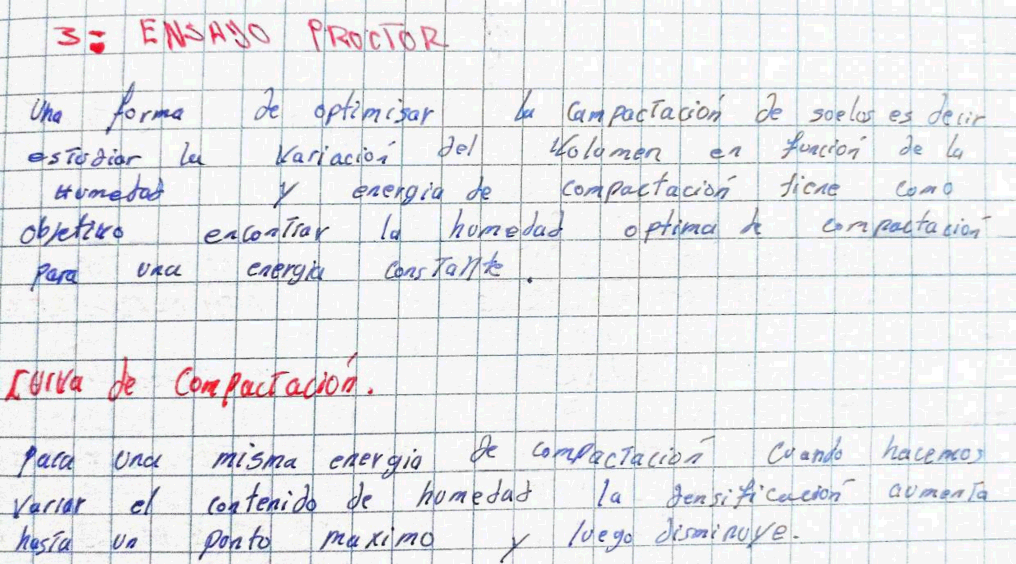 3: ENSAYO PROCTOR
Una forma de optimisar la compactación de soelos es decir
estudiar la variación del volumen en función de la
Humedad y energia de compactación tiene como
objetivo encontrar la humedad optima de compactación
para una energia constante.
Curva de Compactación.
para una misma energia de compactación cuando hacemos
variar el contenido de humedad la densificación aumenta
hasta un ponto maximo y luego disminuye.